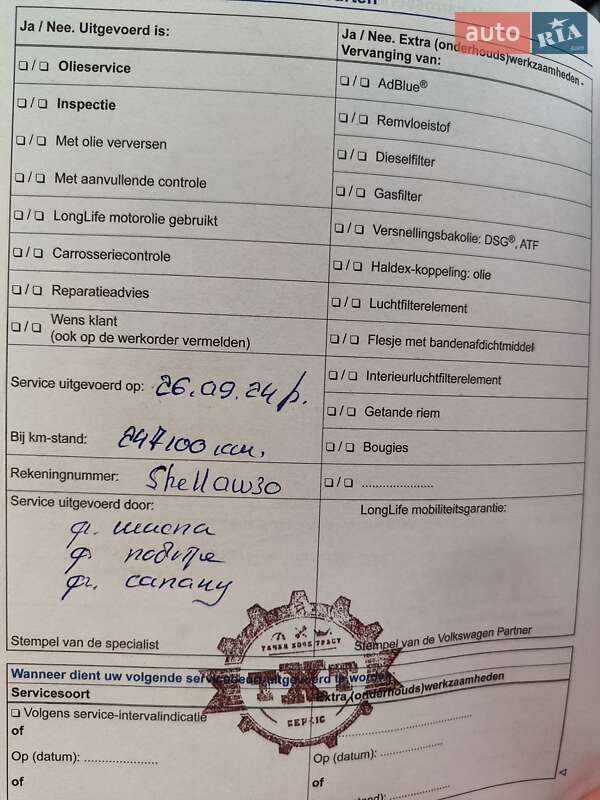 auto RIA.com
Ja / Nee. Uitgevoerd is:
Ja / Nee. Extra (onderhouds)werkzaamheden -
Vervanging van:
❏ / ❏ Olieservice
❏ / ❏ Inspectie
❏ / ❏ Met olie verversen
❏ / ❏ Met aanvullende controle
❏ / ❏ LongLife motorolie gebruikt
❏ / ❏ Carrosseriecontrole
❏ / ❏ Reparatieadvies
❏ / ❏ Wens klant
(ook op de werkorder vermelden)
❏ / ❏ AdBlue®
❏ / ❏ Remvloeistof
❏ / ❏ Dieselfilter
❏ / ❏ Gasfilter
❏ / ❏ Versnellingsbakolie: DSG®, ATF
❏ / ❏ Haldex-koppeling: olie
❏ / ❏ Luchtfilterelement
❏ / ❏ Flesje met bandenafdichtmiddel
❏ / ❏ Interieurluchtfilterelement
❏ / ❏ Getande riem
❏ / ❏ Bougies
❏ / ❏ .....................
Service uitgevoerd op: 26.09.24р.
Bij km-stand: 247100 км.
Rekeningnummer: Shell 0w30
Service uitgevoerd door:
ф. масла
ф. повітря
ф. салону
LongLife mobiliteitsgarantie:
Stempel van de specialist
Stempel van de Volkswagen Partner
СЕРВІС
Wanneer dient uw volgende servicebeurt uitgevoerd te worden
Servicesoort
Extra (onderhouds)werkzaamheden
❏ Volgens service-intervalindicatie
of
Op (datum): ......................
of
Op (datum): ......................
of